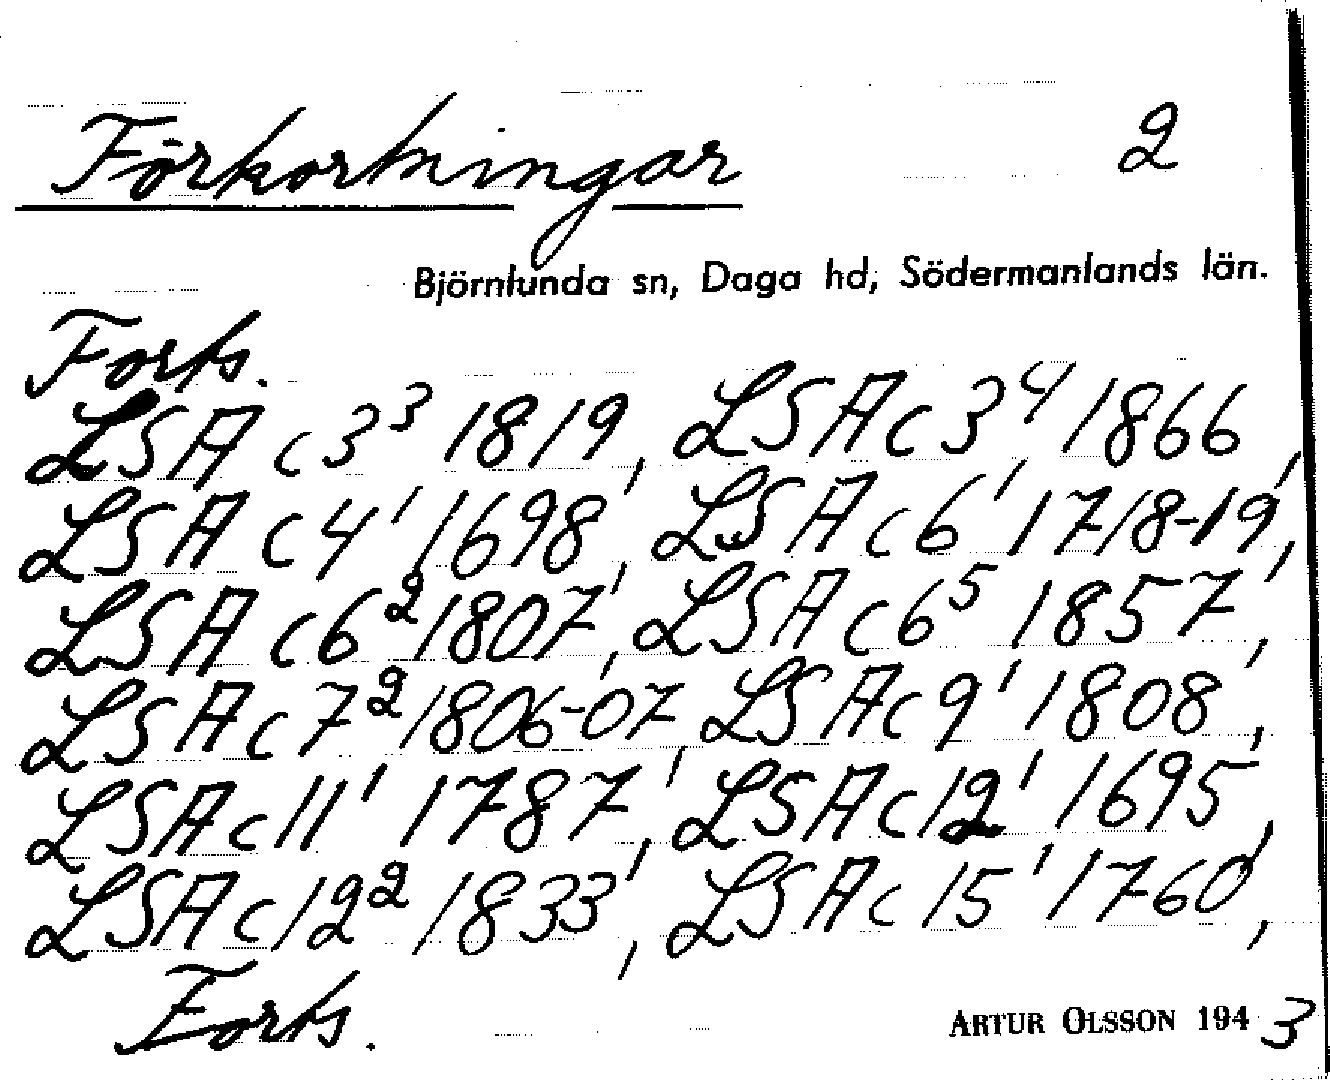 Förkortningar 2
Björnlunda sn, Daga hd, Södermanlands län.
Forts.
LSA c3³ 1819, LSA c3⁴ 1866,
LSA c4¹ 1698, LSA c6¹ 1718-19,
LSA c6² 1807, LSA c6⁵ 1857,
LSA c7² 1806-07, LSA c9¹ 1808,
LSA c11¹ 1787, LSA c12¹ 1695,
LSA c12² 1833, LSA c15¹ 1760,
Forts.
ARTUR OLSSON 1943